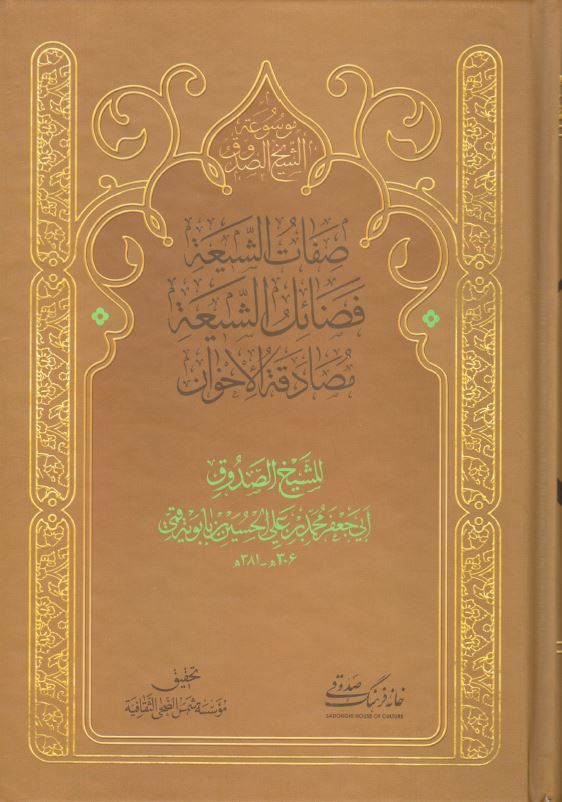 موسوعة
الشيخ الصدوق
صفات الشّيعة
فضائل الشّيعة
مصادقة الإخوان
للشّيخ الصّدوق
أبي جعفر محمد بن علي الحسين بن بابويه قمي
٣٠٦هـ - ٣٨١هـ
تحقيق
مؤسسة شمس الضحى الثقافية
خانه فرهنگ صدوقی
SADOUGHI HOUSE OF CULTURE